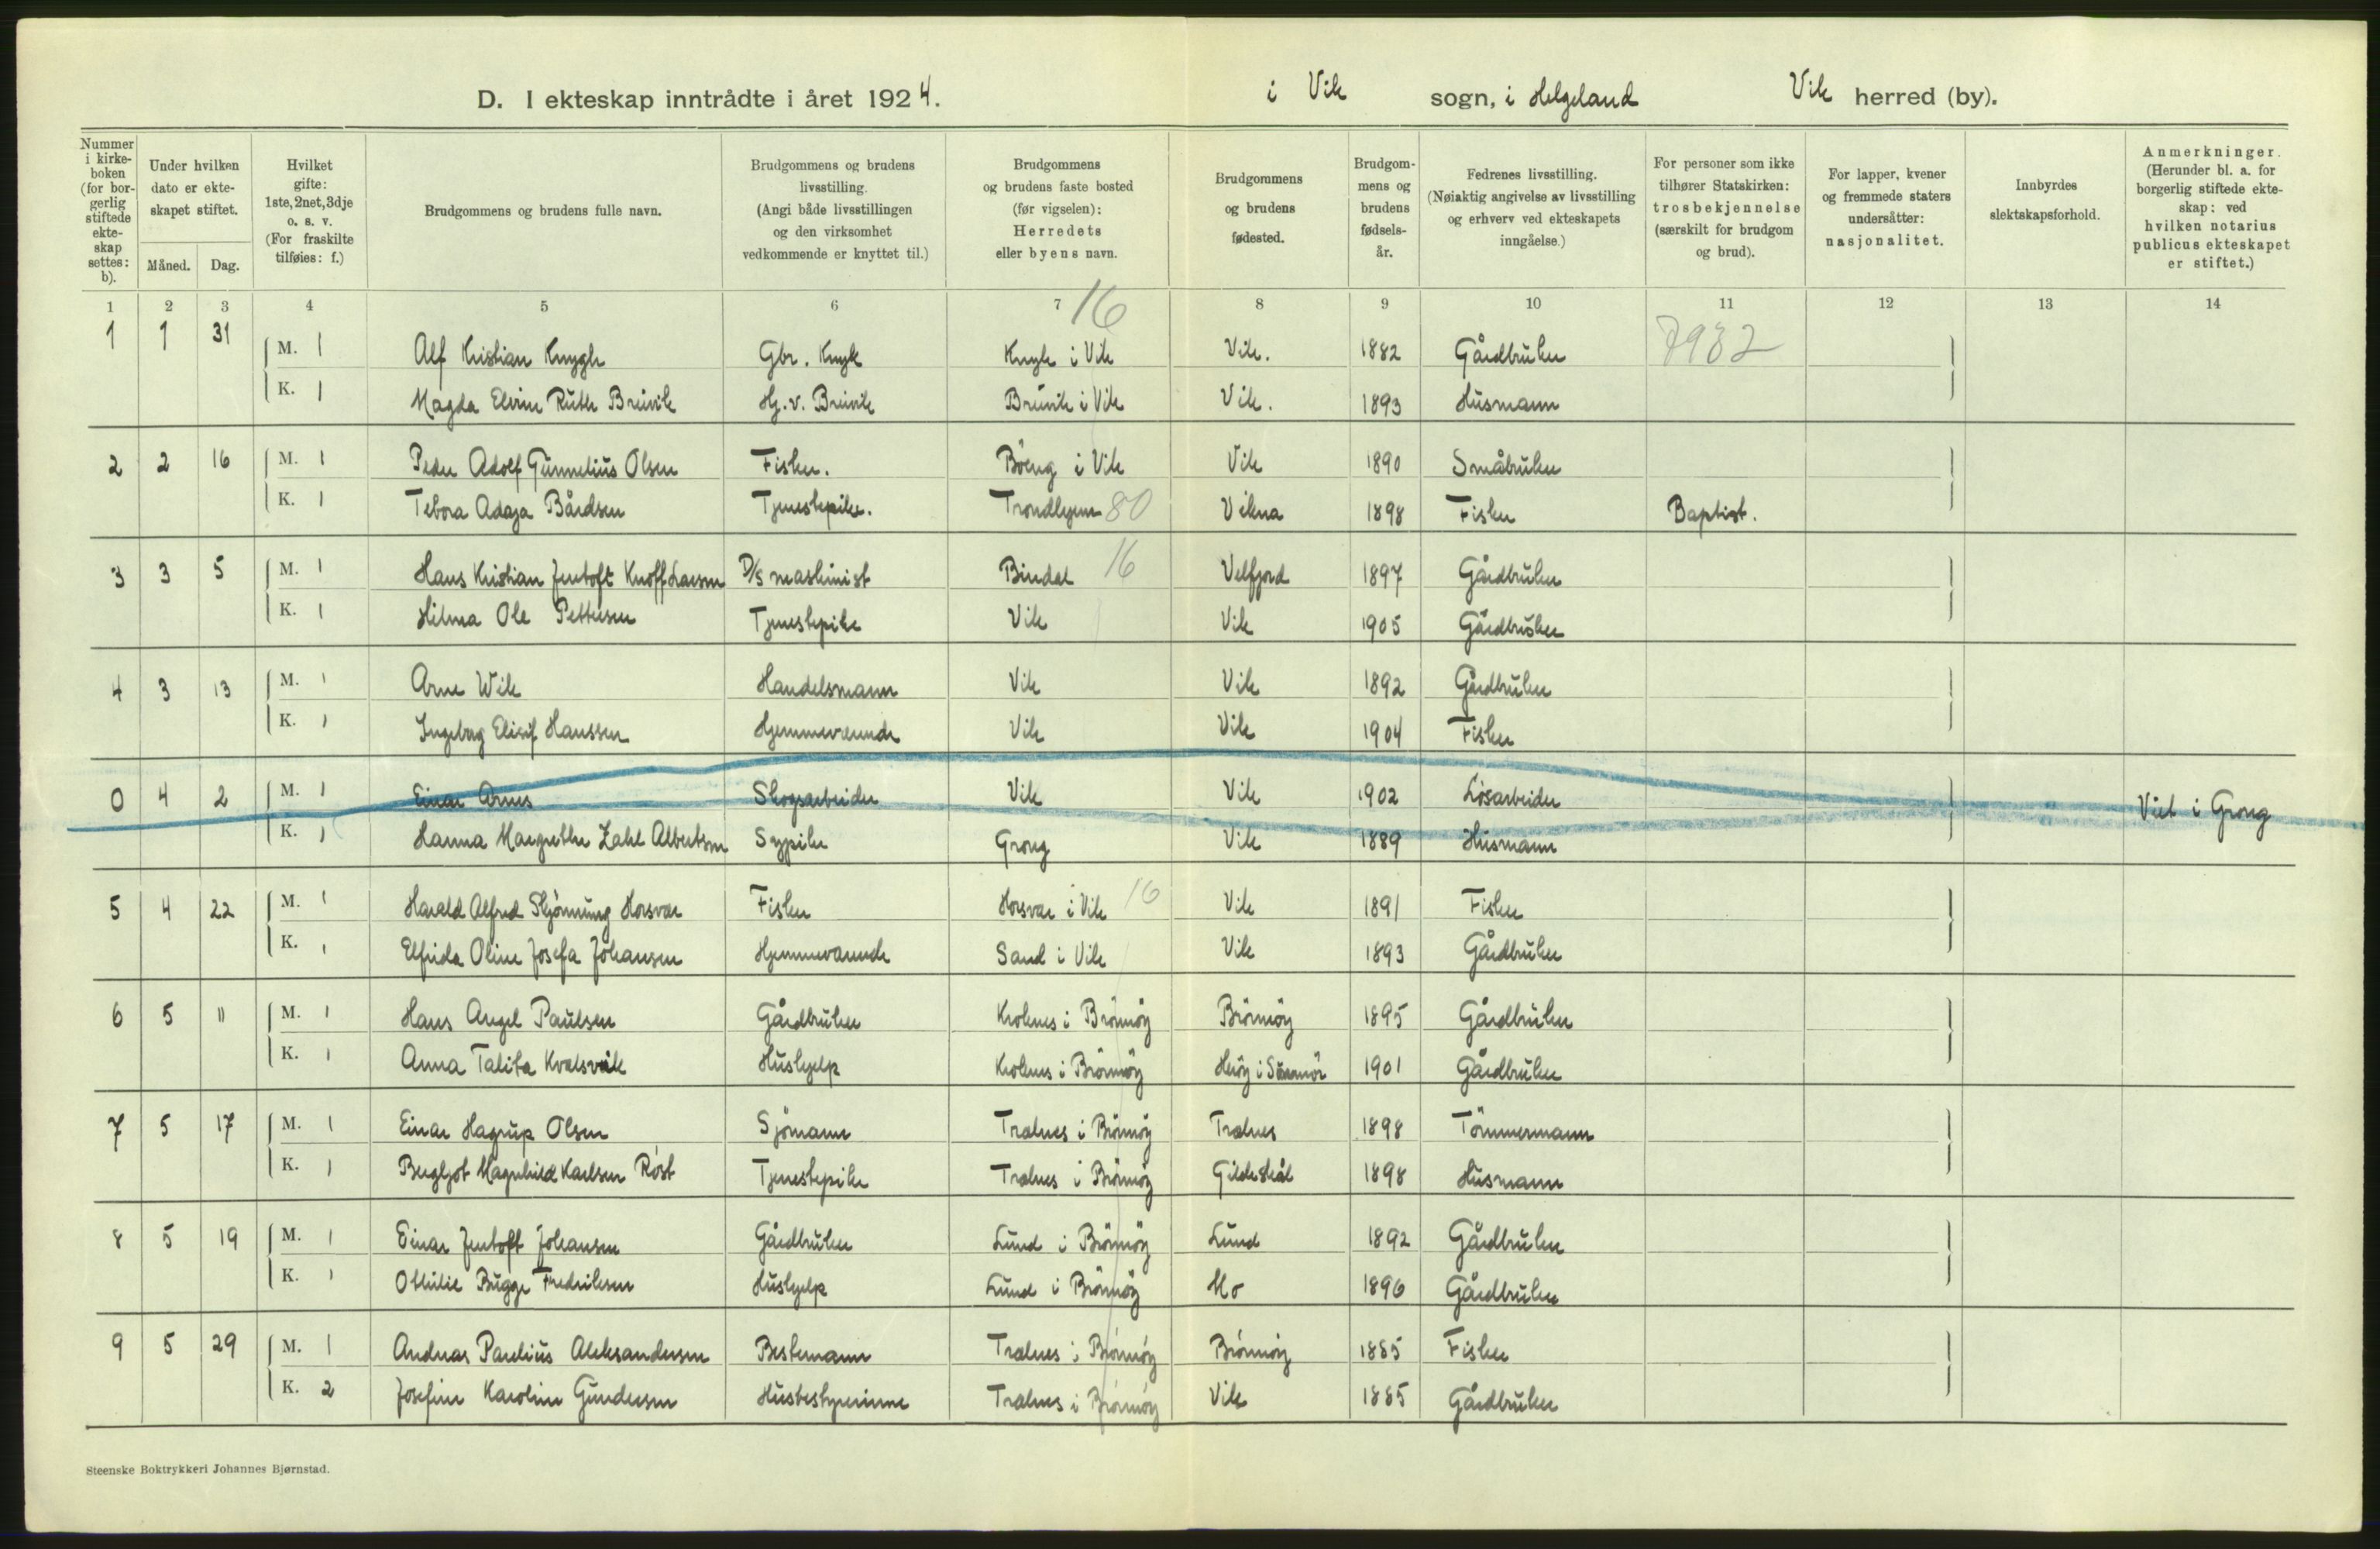 D. I ekteskap inntrådte i året 1924. i Vik sogn, i Helgeland Vik herred (by).
Nummer i kirkeboken (for borgerlig stiftede ekteskap settes: b).
Under hvilken dato er ekteskapet stiftet.
Måned. Dag.
Hvilket gifte: 1ste, 2net, 3dje o. s. v. (For fraskilte tilføies: f.)
Brudgommens og brudens fulle navn.
Brudgommens og brudens livsstilling. (Angi både livsstillingen og den virksomhet vedkommende er knyttet til.)
Brudgommens og brudens faste bosted (før vigselen): Herredets eller byens navn.
Brudgommens og brudens fødested.
Brudgommens og brudens fødselsår.
Fedrenes livsstilling. (Nøiaktig angivelse av livsstilling og erhverv ved ekteskapets inngåelse.)
For personer som ikke tilhører Statskirken: trosbekjennelse (særskilt for brudgom og brud).
For lapper, kvener og fremmede staters undersåtter: nasjonalitet.
Innbyrdes slektskapsforhold.
Anmerkninger. (Herunder bl. a. for borgerlig stiftede ekteskap: ved hvilken notarius publicus ekteskapet er stiftet.)
1 2 3 4 5 6 7 8 9 10 11 12 13 14
16
1 1 31 M. 1 Alf Kristian Knygh Gbr. Knyk Knyk i Vik Vik. 1882 Gårdbruker 7982
K. 1 Magda Elvine Ruth Breivik Hj. v. Breivik Breivik i Vik Vik. 1893 Husmann
2 2 16 M. 1 Peder Adolf Gunnelius Olsen Fisker. Böeng i Vik Vik 1890 Småbruker
K. 1 Tebora Adaja Bårdsen Tjenestepike. Trondhjem 80 Vikna 1898 Fisker Baptist.
3 3 5 M. 1 Hans Kristian Jentoft Knoff Larsen D/s maskinist Bindal 16 Velfjord 1897 Gårdbruker
K. 1 Hilma Ole Pettersen Tjenestepike Vik Vik 1905 Gårdbruker
4 3 13 M. 1 Arne Wik Handelsmann Vik Vik 1892 Gårdbruker
K. 1 Ingeborg Elisif Hanssen Hjemmeværende Vik Vik 1904 Fisker
0 4 2 M. 1 Einar Arnes Skogsarbeider Vik Vik 1902 Lösarbeider Viet i Grong
K. 1 Hanna Margrethe Zahl Albertsen Sypike Grong Vik 1889 Husmann
5 4 22 M. 1 Harald Alfred Skjönning Horsvær Fisker Horsvær i Vik 16 Vik 1891 Fisker
K. 1 Elfrida Oline Josefa Johansen Hjemmeværende Sand i Vik Vik 1893 Gårdbruker
6 5 11 M. 1 Hans Angel Paulsen Gårdbruker Kroknes i Brönnöy Brönnöy 1895 Gårdbruker
K. 1 Anna Talita Kvalsvik Hushjelp Kroknes i Brönnöy Heröy i Sönnmör 1901 Gårdbruker
7 5 17 M. 1 Einar Hagrup Olsen Sjömann Trælnes i Brönnöy Trælnes 1898 Tömmermann
K. 1 Bergljot Magnhild Karlsen Röst Tjenestepike Trælnes i Brönnöy Gildeskål 1898 Husmann
8 5 19 M. 1 Einar Jentoft Johansen Gårdbruker Lund i Brönnöy Lund 1892 Gårdbruker
K. 1 Ottilie Bugge Fredriksen Hushjelp Lund i Brönnöy Mo 1896 Gårdbruker
9 5 29 M. 1 Andreas Paulius Aleksandersen Bestemann Trælnes i Brönnöy Brönnöy 1885 Fisker
K. 2 Josefine Karoline Gundersen Husbestyrerinne Trælnes i Brönnöy Vik 1885 Gårdbruker
Steenske Boktrykkeri Johannes Bjørnstad.